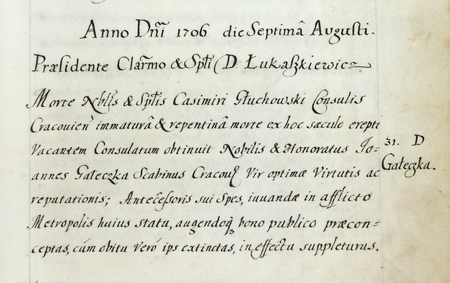 Anno Dñi 1706 die Septimâ Augusti.
Præsidente Clarmo & Spti D Łukaszkiewicz
Morte Nblis & Sptis Casimiri Głuchowski Consulis
Cracovien immaturâ & repentinâ morte ex hoc sæculo erepti
Vacantem Consulatum obtinuit Nobilis & Honoratus Jo-
annes Gałeczka Scabinus Cracov Vir optimæ Virtutis ac
reputationis; Antecessoris sui Spes, iuvandæ in afflicto
Metropolis huius statu, augendoq bono publico præcon-
ceptas, cùm obitu Verò ips extinctas, in effectu suppleturus.
31. D
Gałeczka.